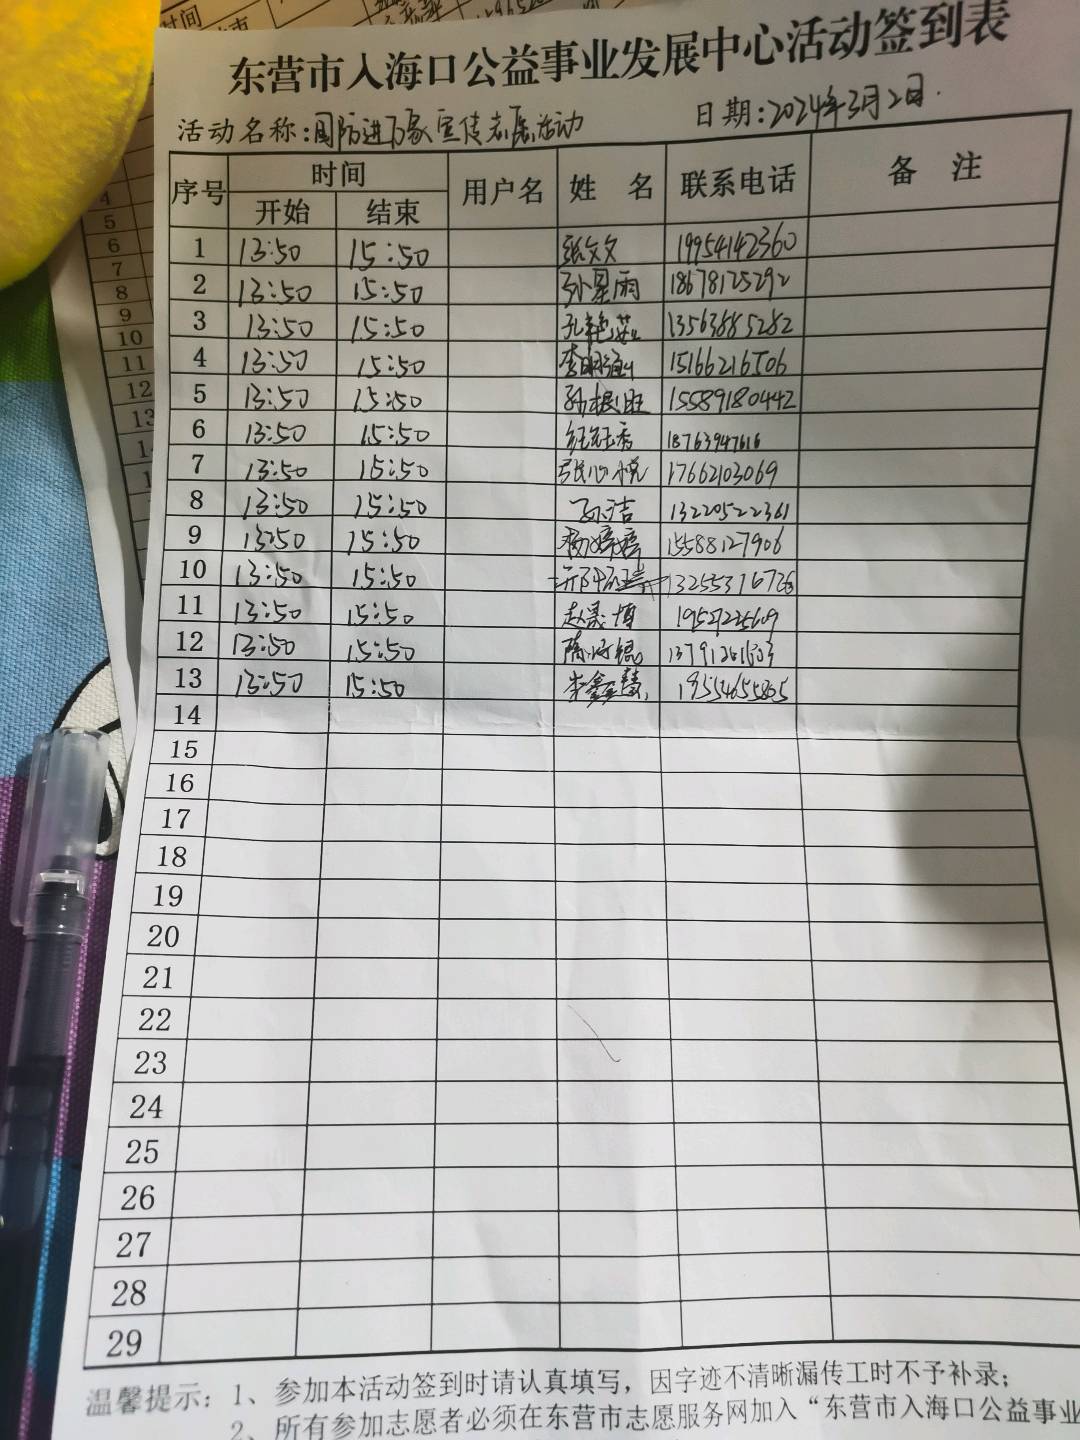 东营市入海口公益事业发展中心活动签到表
活动名称:国防进万家宣传志愿活动 日期:2024年3月2日.
序号 时间 用户名 姓名 联系电话 备注
开始 结束
1 13:50 15:50 张文文 19954142360
2 13:50 15:50 孙星雨 18678125292
3 13:50 15:50 13563885282
4 13:50 15:50 15166216506
5 13:50 15:50 15589180442
6 13:50 15:50 18763947616
7 13:50 15:50 张心悦 17662103069
8 13:50 15:50 孙洁 13220522361
9 13:50 15:50 杨婷婷 15588127906
10 13:50 15:50
11 13:50 15:50 赵晟博
12 13:50 15:50
13 13:50 15:50 朱鑫慧
14
15
16
17
18
19
20
21
22
23
24
25
26
27
28
29
温馨提示: 1、参加本活动签到时请认真填写，因字迹不清晰漏传工时不予补录;
2、所有参加志愿者必须在东营市志愿服务网加入“东营市入海口公益事业